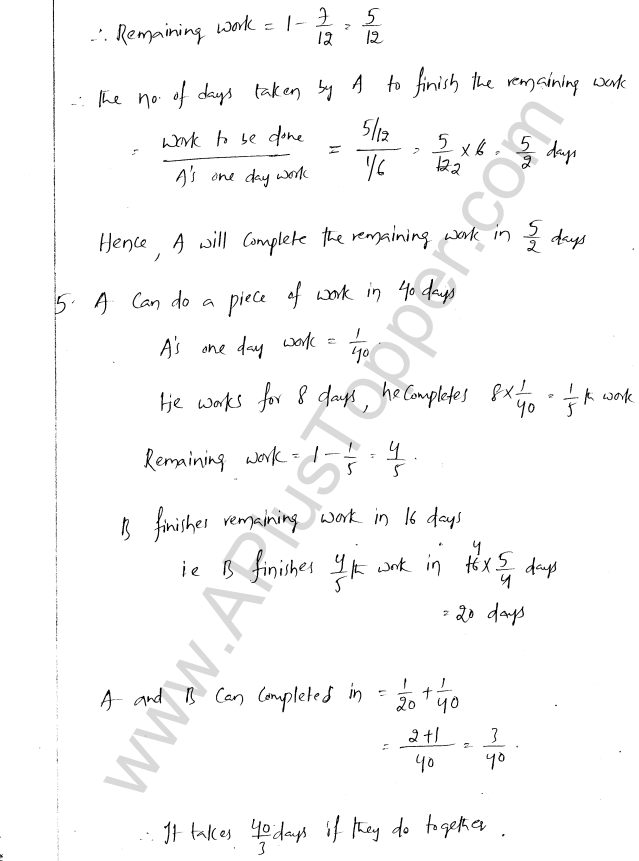 ∴ Remaining work = 1 - 7/12 = 5/12
∴ The no. of days taken by A to finish the remaining work
= work to be done / A's one day work = 5/12 / 1/6 = 5/12 2 × 6 = 5/2 days
Hence, A will complete the remaining work in 5/2 days
5. A can do a piece of work in 40 days
A's one day work = 1/40.
He works for 8 days, he completes 8 × 1/40 = 1/5 th work
Remaining work = 1 - 1/5 = 4/5.
B finishes remaining work in 16 days
ie B finishes 4/5 th work in 4 16 × 5/4 days
= 20 days
A and B can completed in = 1/20 + 1/40
= 2+1/40 = 3/40.
∴ It takes 40/3 days if they do together.
www.APlusTopper.com